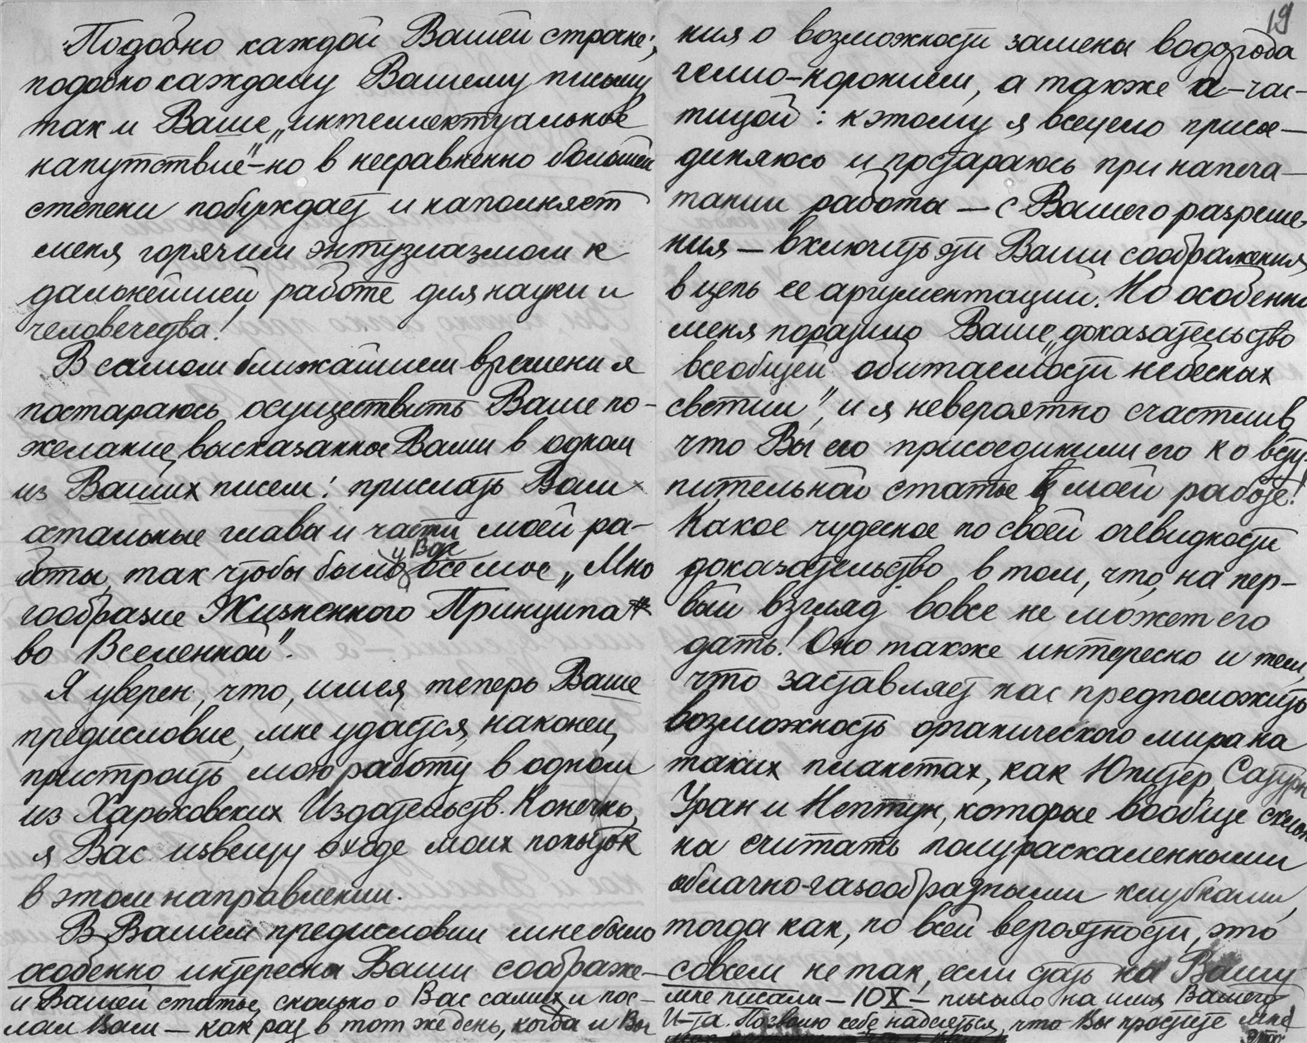 Подобно каждой Вашей строке,
подобно каждому Вашему письму
так и Ваше „интеллектуальное
напутствие" – но в несравненно большей
степени побуждает и наполняет
меня горячим энтузиазмом к
дальнейшей работе для науки и
человечества!
В самом ближайшем времени я
постараюсь осуществить Ваше по-
желание, высказанное Вами в одном
из Ваших писем: прислать Вам
остальные главы и части моей ра-
боты, так чтобы было у Вас все мое „Мно
гообразие Жизненного Принципа
во Вселенной".
Я уверен, что, имея теперь Ваше
предисловие, мне удастся, наконец,
пристроить мою работу в одном
из Харьковских Издательств. Конечно,
я Вас извещу о ходе моих попыток
в этом направлении.
В Вашем предисловии мне было
особенно интересны Ваши соображе-
и Вашей статье, сколько о Вас самих и пос-
лал Вам – как раз в тот же день, когда и Вы
19
ния о возможности замены водорода
гелио-коронием, а также α-час-
тицой: к этому я всецело присо-
диняюсь и постараюсь при напеча-
тании работы – с Вашего разреше-
ния – включить эти Ваши соображения
в цепь ее аргументации. Но особенно
меня поразило Ваше „доказательство
всеобщей обитаемости небесных
светил", и я невероятно счастлив,
что Вы его присоединили его ко всту-
пительной статье к моей работе!
Какое чудесное по своей очевидности
доказательство в том, что, на пер-
вый взгляд вовсе не может его
дать! Оно также интересно и тем,
что заставляет нас предположить
возможность органического мира на
таких планетах, как Юпитер, Сатурн
Уран и Нептун, которые вообще склон
на считать полураскаленными
облачно-газообразными клубками,
тогда как, по всей вероятности, это
совсем не так, если стать на Вашу
мне писали – 10 X – письмо на имя Вашего
И-та. Позволю себе надеяться, что Вы простите мне
это